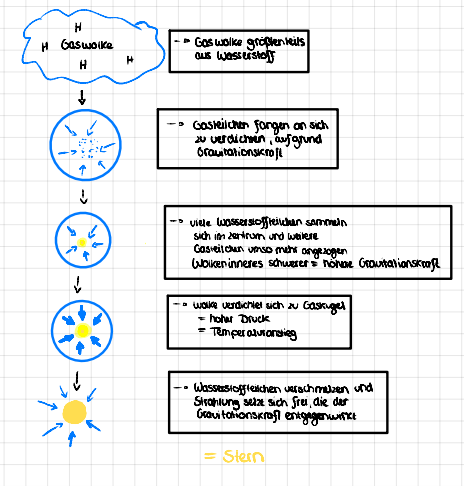 H
H Gaswolke
H H
-> Gaswolke größtenteils
aus Wasserstoff
-> Gasteilchen fangen an sich
zu verdichten, aufgrund
Gravitationskraft
-> viele Wasserstoffteilchen sammeln
sich im Zentrum und weitere
Gasteilchen umso mehr angezogen
(Wolkeninneres schwerer = höhere Gravitationskraft
-> Wolke verdichtet sich zu Gaskugel
= hoher Druck
= Temperaturanstieg
-> Wasserstoffteilchen verschmelzen und
Strahlung setzt sich frei, die der
Gravitationskraft entgegenwirkt
= Stern